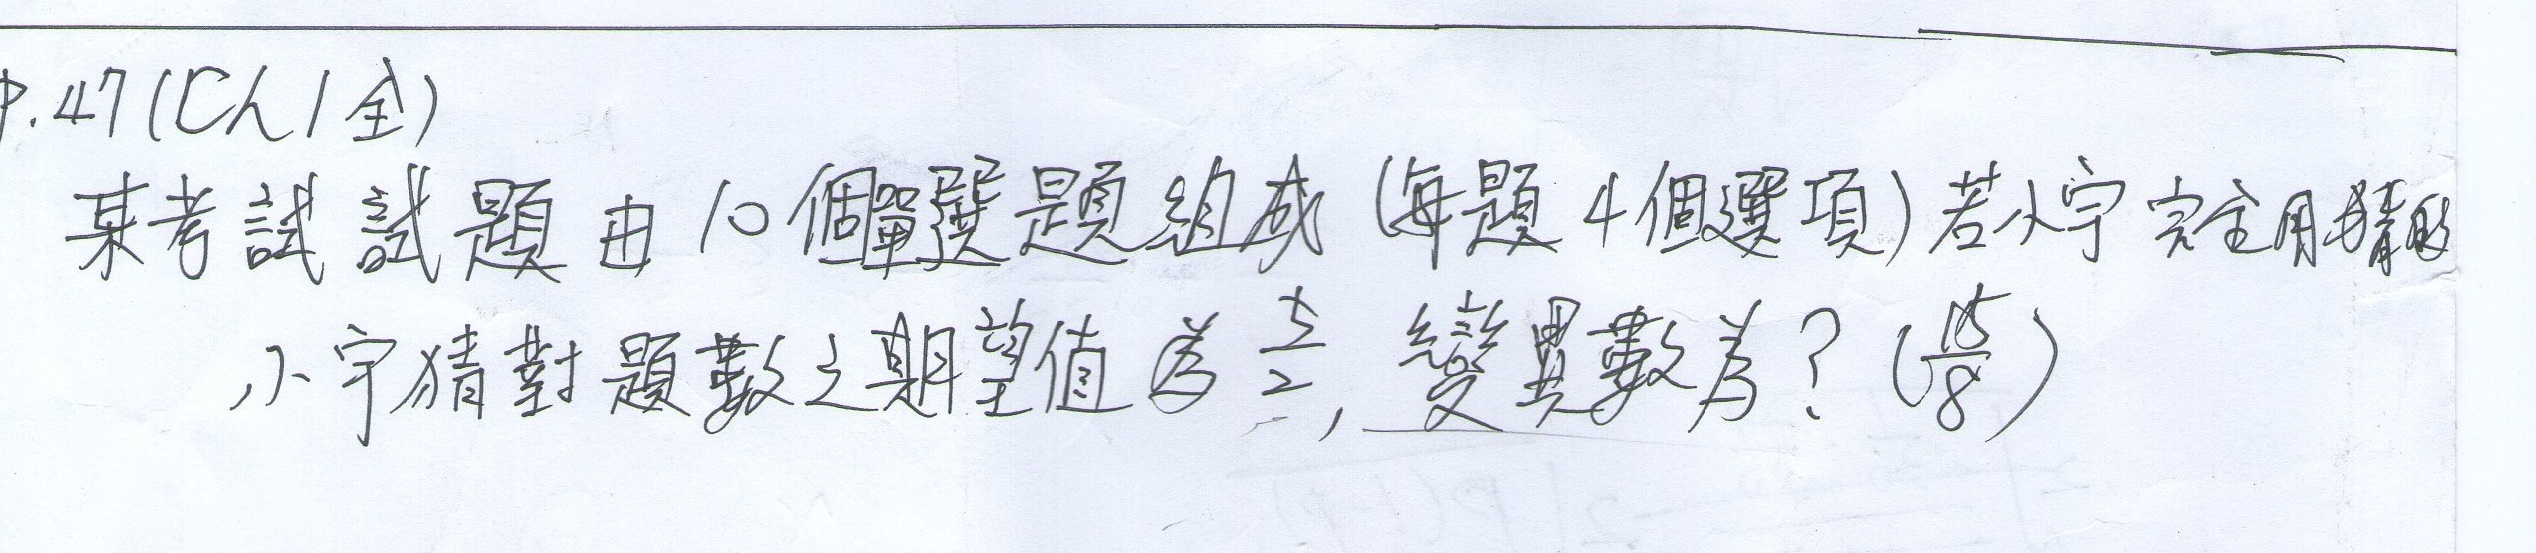 P.47(Ch1全)
某考試試題由10個單選題組成(每題4個選項)若小宇完全用猜的
小宇猜對題數之期望值為5/2,變異數為?(15/8)